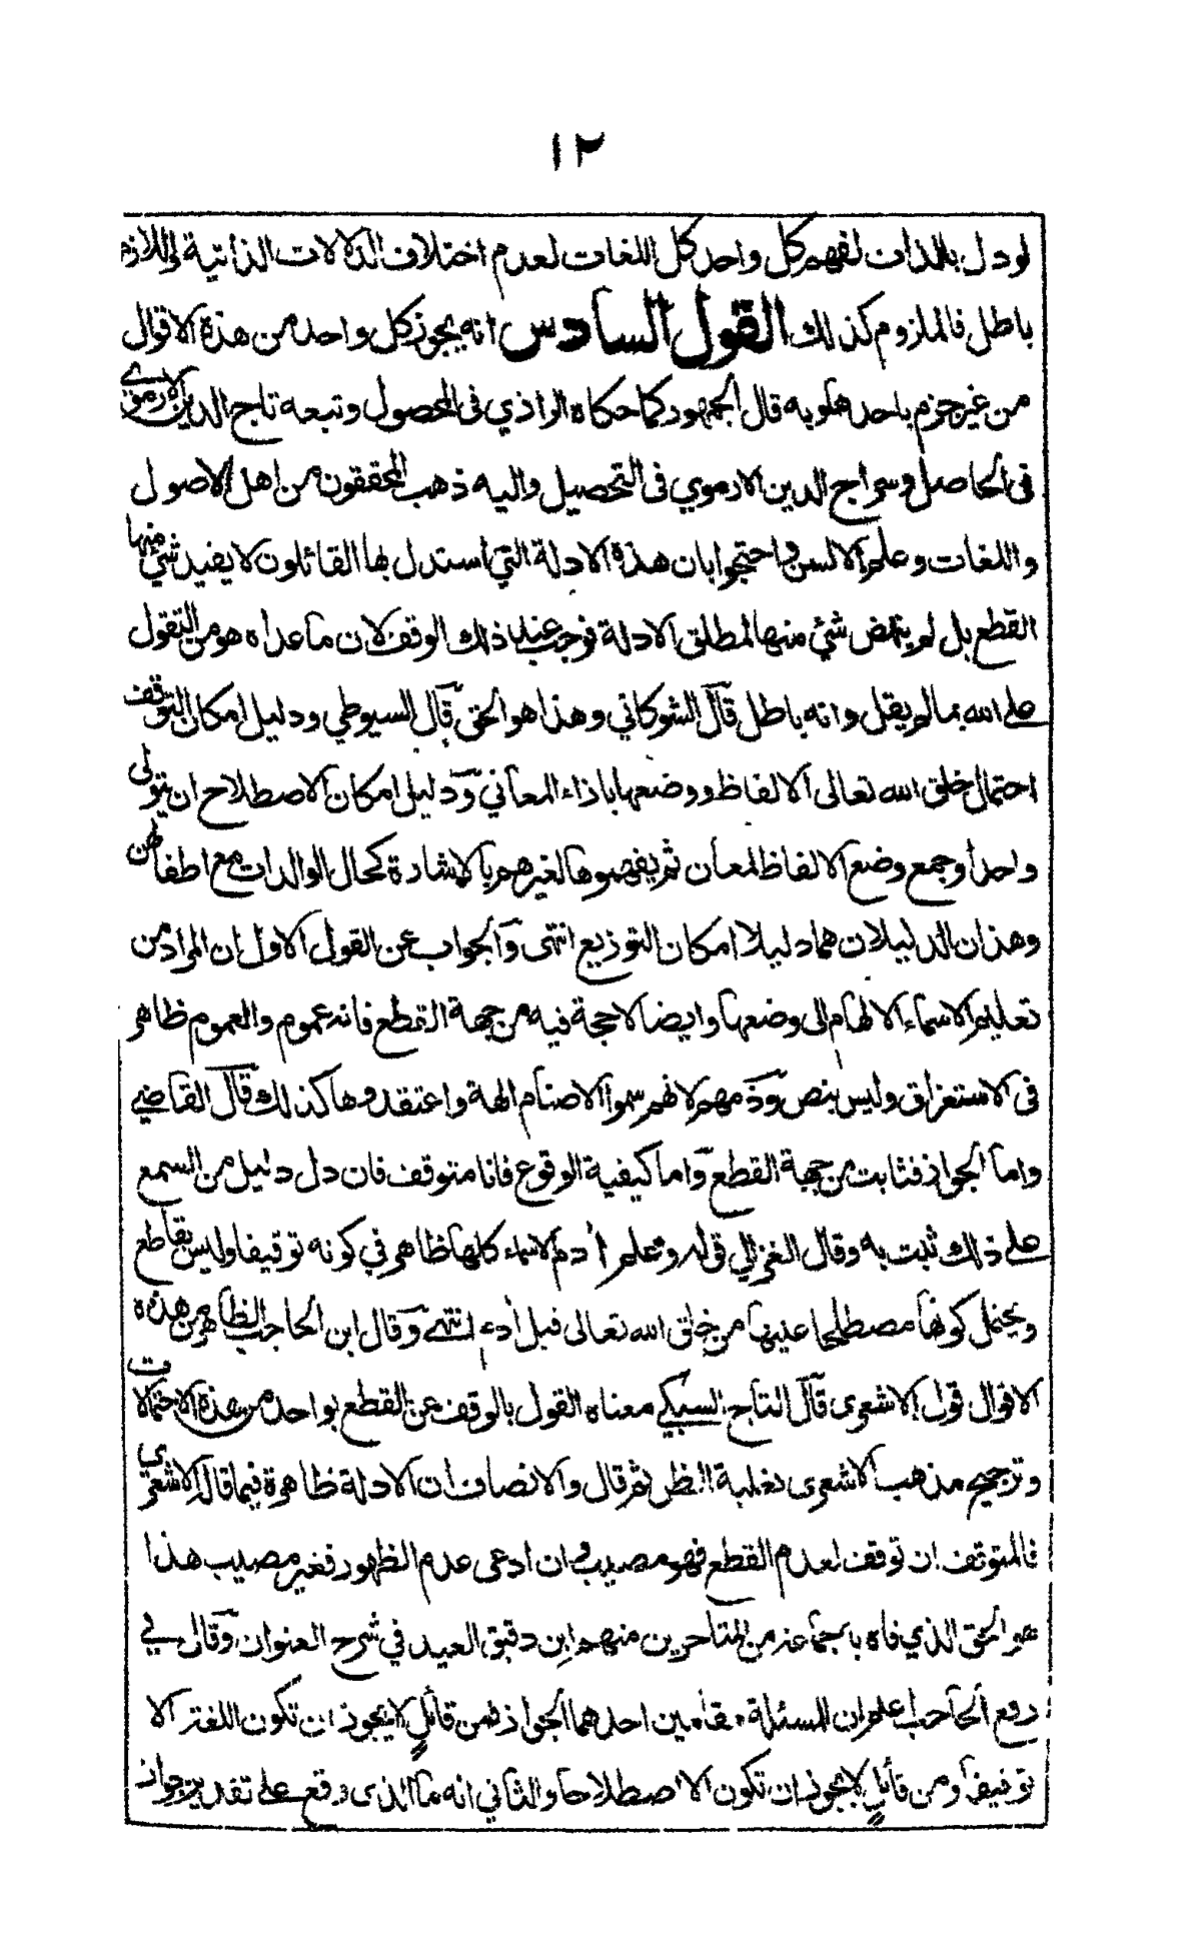 ١٢
لو دل بالذات لفهم كل واحد كل اللغات لعدم اختلاف الدلالات الذاتية واللازم
باطل فالملزوم كذلك القول السادس انه يجوز كل واحد من هذه الاقوال
من غير جزم باحدها وبه قال الجمهور كما حكاه الرازي فى المحصول وتبعه تاج الدين الارموي
فى الحاصل وسراج الدين الارموي فى التحصيل واليه ذهب المحققون من اهل الاصول
واللغات وعلم الالسن واحتجوا بان هذه الادلة التي استدل بها القائلون لا يفيد شئ منها
القطع بل لم ينهض شئ منها لمطلق الادلة فوجب عند ذلك الوقف لان ما عداه هو من التقول
على الله بما لم يقل وانه باطل قال الشوكاني وهذا هو الحق قال السيوطي ودليل امكان التوقف
احتمال خلق الله تعالى الالفاظ ووضعها باذاء المعاني ودليل امكان الاصطلاح ان يتولى
واحد أو جمع وضع الالفاظ لمعان ثم يفهموها لغيرهم بالاشارة كحال الوالدات مع اطفالهن
وهذان الدليلان هما دليلا امكان التوزيع انتهى والجواب عن القول الاول ان المراد من
تعليم الاسماء الالهام الى وضعها وايضا لا حجة فيه من جهة القطع فانه عموم والعموم ظاهر
فى الاستغراق وليس بنص وذمهم لانهم سموا الاصنام الهة واعتقدوها كذلك قال القاضي
واما الجواز فثابت من جهة القطع واما كيفية الوقوع فانا متوقف فان دل دليل من السمع
على ذلك ثبت به وقال الغزالي قوله وعلم أدم الاسماء كلها ظاهر في كونه توقيفا وليس بقاطع
ويحتمل كونها مصطلحا عليها من خلق الله تعالى قبل أدم انتهى وقال ابن الحاجب الظاهر من هذه
الاقوال قول الاشعرى قال التاج السبكي معناه القول بالوقف عن القطع بواحد من هذه الاحتمالات
وترجيح مذهب الاشعرى بغلبة الظن ثم قال والانصاف ان الادلة ظاهرة فيما قاله الاشعري
فالمتوقف ان توقف لعدم القطع فهو مصيب وان ادعى عدم الظهور فغير مصيب هذا
هو الحق الذي فاه به جماعة من المتاخرين منهم ابن دقيق العيد في شرح العنوان وقال في
رفع الحاجب اعلم ان للمسئلة مقامين احدهما الجواز فمن قائل لا يجوز ان تكون اللغة الا
توقيفا ومن قائل لا يجوز ان تكون الا اصطلاحا والثاني انه ما الذى وقع على تقدير جواز